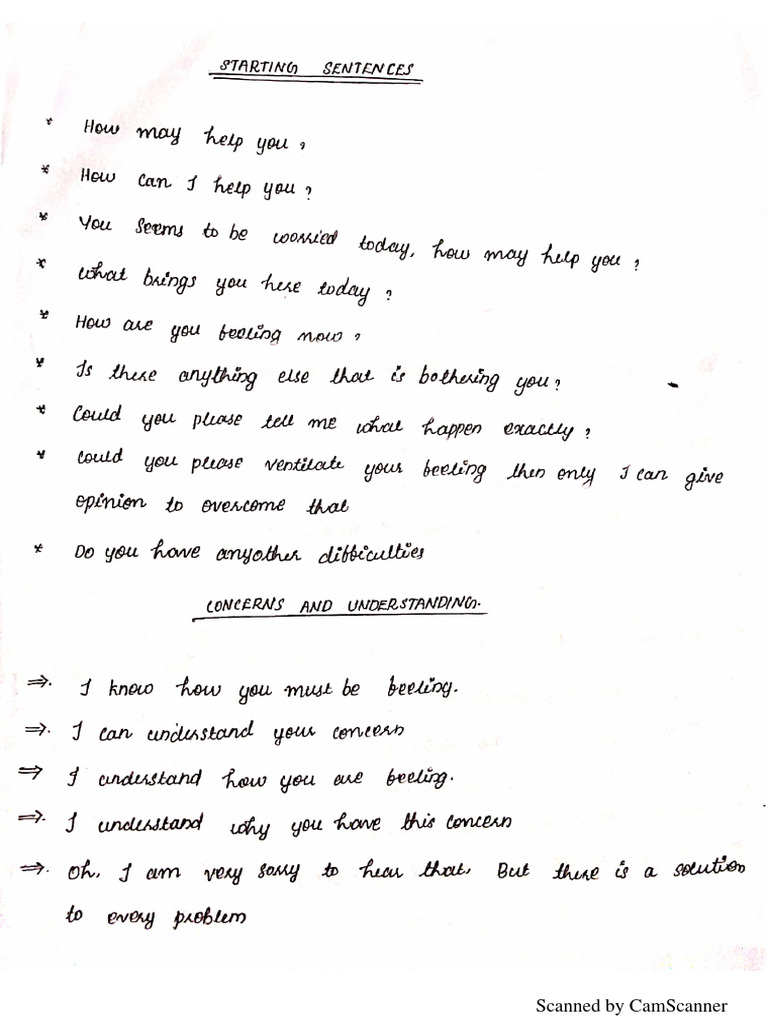 STARTING SENTENCES
* How may help you?
* How can I help you?
* You seems to be worried today, how may help you?
* What brings you here today?
* How are you feeling now?
* Is there anything else that is bothering you?
* Could you please tell me what happen exactly?
* Could you please ventilate your feeling then only I can give
opinion to overcome that
* Do you have anyother difficulties
CONCERNS AND UNDERSTANDING.
⇒. I know how you must be feeling.
⇒. I can understand your concern
⇒ I understand how you are feeling.
⇒. I understand why you have this concern
⇒. Oh, I am very sorry to hear that. But there is a solution
to every problem
Scanned by CamScanner